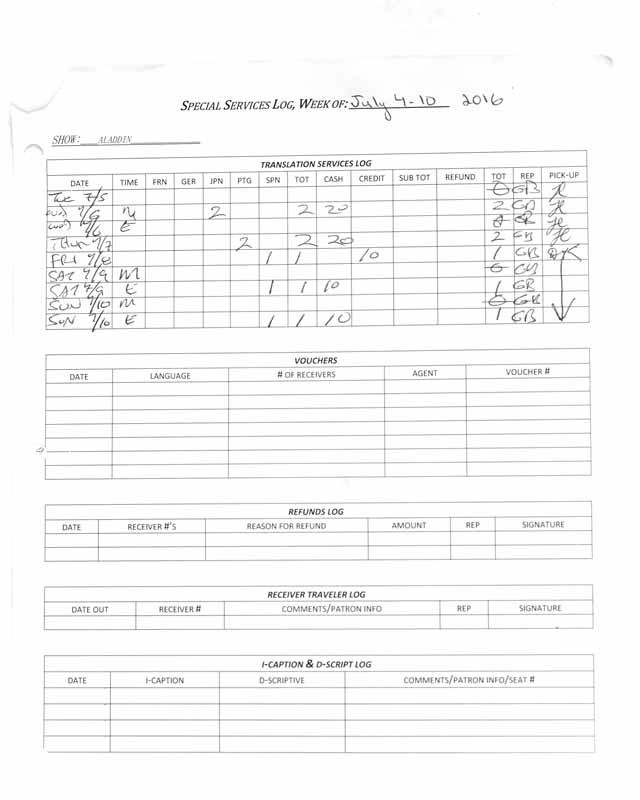 SPECIAL SERVICES LOG, WEEK OF: July 4-10 2016
SHOW: ALADDIN
TRANSLATION SERVICES LOG
DATE TIME FRN GER JPN PTG SPN TOT CASH CREDIT SUB TOT REFUND TOT REP PICK-UP
Tue 7/5 0 GB
Wed M 2 2 20 2 GB
Wed 7/6 E 0 GB
Thur 7/7 2 2 20 2 GB
FRI 7/8 1 1 10 1 GB
SAT 7/9 M 0 GB
SAT 7/9 E 1 1 10 1 GB
SUN 7/10 M 0 GB
SUN 7/10 E 1 1 10 1 GB
VOUCHERS
DATE LANGUAGE # OF RECEIVERS AGENT VOUCHER #
REFUNDS LOG
DATE RECEIVER #'S REASON FOR REFUND AMOUNT REP SIGNATURE
RECEIVER TRAVELER LOG
DATE OUT RECEIVER # COMMENTS/PATRON INFO REP SIGNATURE
I-CAPTION & D-SCRIPT LOG
DATE I-CAPTION D-SCRIPTIVE COMMENTS/PATRON INFO/SEAT #